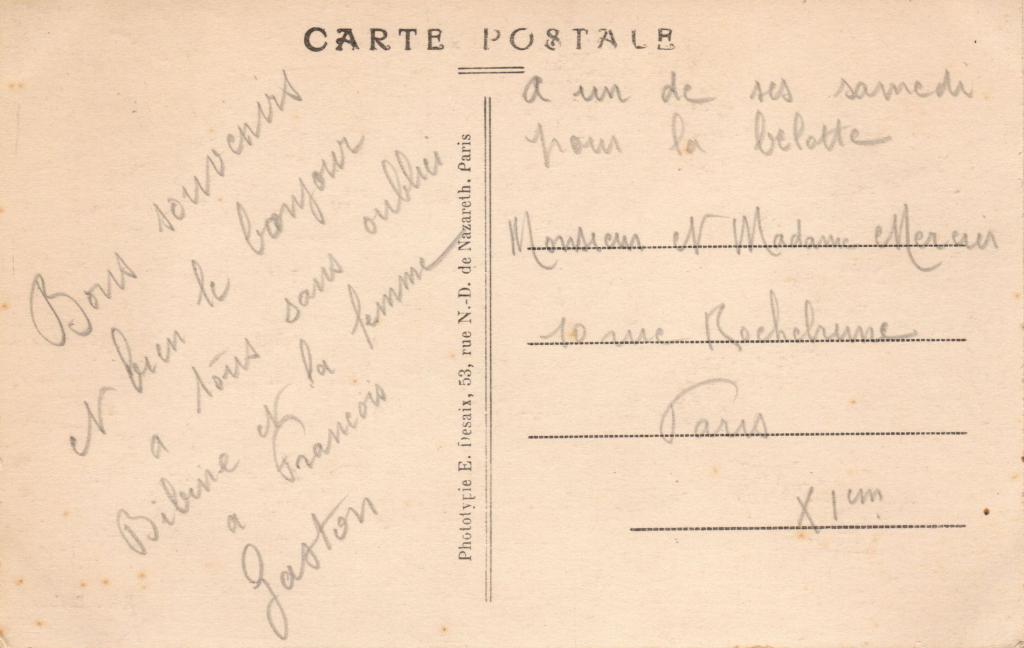 CARTE POSTALE
Bons souvenirs
et bien le bonjour
a tous sans oublier
Bibine et la femme
a Francois
Gaston
Phototypie E. Desaix, 53, rue N.-D. de Nazareth. Paris
a un de ses samedi
pour la belotte
Monsieur et Madame Mercier
10 rue Rochebrune
Paris
XIem